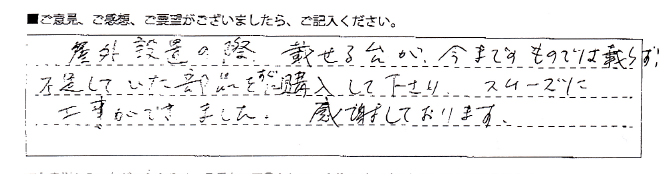 ■ご意見、ご感想、ご要望がございましたら、ご記入ください。
屋外設置の際 載せる台が、今までのものでは載らず、
不足していた部品をすぐ購入して下さり スムーズに
工事ができました。 感謝しております。